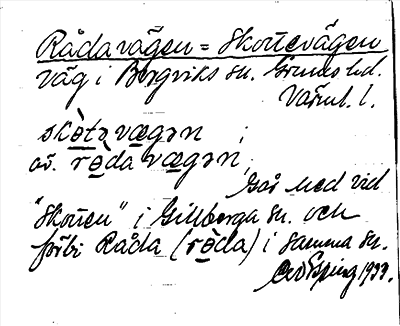 Rådavägen = Skottevägen
väg i Borgviks sn. Grums hd.
Värml. l.
skòtə vægən ;
av. rò̱da vægən ;
Går ned vid
"Skotten" i Gillberga sn. och
förbi Råda (rò̱da) i samma sn.
1933.